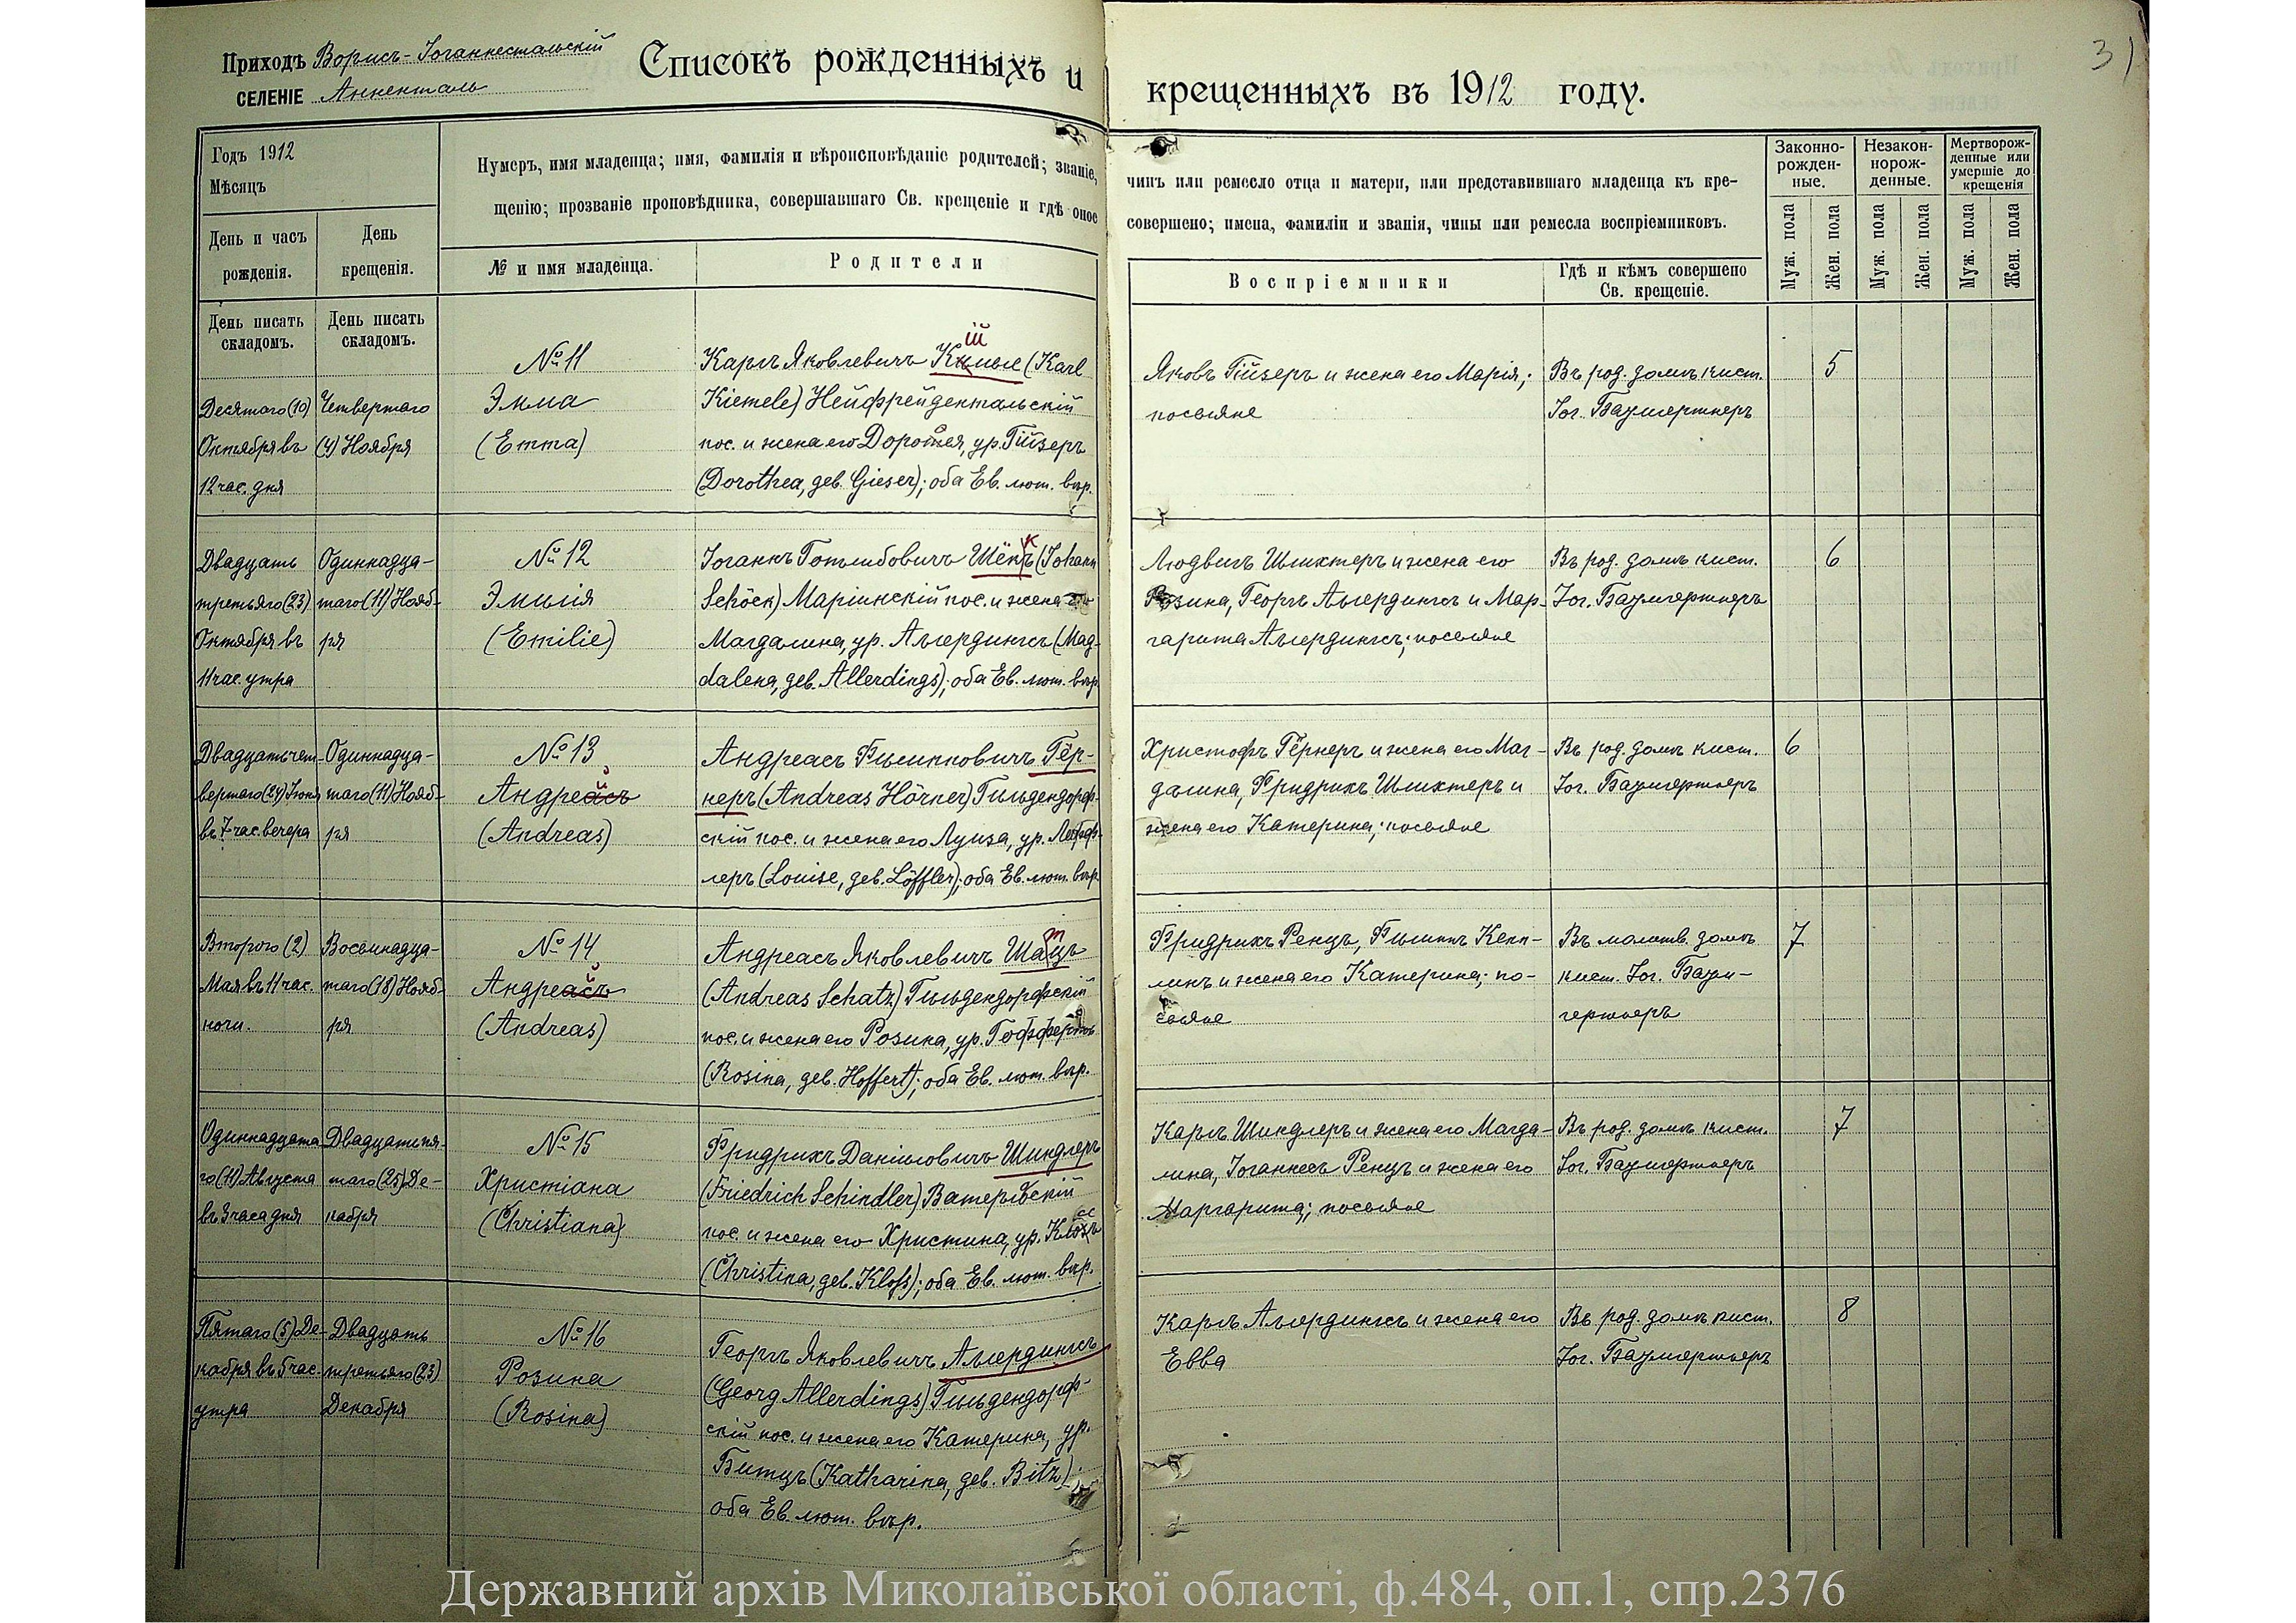 Приходъ Ворисъ-Іоганнестальскій
СЕЛЕНІЕ Анненталь
Списокъ рожденныхъ и крещенныхъ въ 1912 году.
31
Годъ 1912
Мѣсяцъ
День и часъ рожденія.
День крещенія.
Нумеръ, имя младенца; имя, фамилія и вѣроисповѣданіе родителей; званіе, чинъ или ремесло отца и матери, или представившаго младенца къ кре-
щенію; прозваніе проповѣдника, совершавшаго Св. крещеніе и гдѣ оное совершено; имена, фамиліи и званія, чины или ремесла воспріемниковъ.
№ и имя младенца.
Родители
Воспріемники
Гдѣ и кѣмъ совершено
Св. крещеніе.
Законно-
рожден-
ные.
Незакон-
норож-
денные.
Мертворож-
денные или
умершіе до
крещенія
Муж. пола
Жен. пола
Муж. пола
Жен. пола
Муж. пола
Жен. пола
День писать
складомъ.
День писать
складомъ.
Десятаго (10)
Октября въ
12 час. дня
Четвертаго
(4) Ноября
№ 11
Эмма
(Emma)
ій
Карлъ Яковлевичъ (Karl
Kiemele) Нейфрейдентальскій
пос. и жена его Доротея, ур. Гійзеръ
(Dorothea, geb. Gieser); оба Ев. лют. вѣр.
Яковъ Гійзеръ и жена его Марія;
поселяне
Въ род. домѣ кист.
Іог. Баумгертнеръ
5
Двадцать
третьяго (23)
Октября въ
11 час. утра
Одиннадца-
таго (11) Нояб-
ря
№ 12
Эмилія
(Emilie)
Іоганнъ Готлибовичъ Шёкъ (Johann
Schöck) Маріинскій пос. и жена его
Магдалина, ур. Аллердингсъ (Mag-
dalena, geb. Allerdings); оба Ев. лют. вѣр.
Людвигъ Шлихтеръ и жена его
Розина, Георгъ Аллердингсъ и Мар-
гарита Аллердингсъ; поселяне
Въ род. домѣ кист.
Іог. Баумгертнеръ
6
Двадцать чет-
вертаго (24) Іюня
въ 7 час. вечера
Одиннадца-
таго (11) Нояб-
ря
№ 13
Андреасъ
(Andreas)
Андреасъ Филипповичъ Гёр-
неръ (Andreas Hörner) Гильдендорф-
скій пос. и жена его Луиза, ур. Лефф-
леръ (Louise, geb. Löffler); оба Ев. лют. вѣр.
Христофъ Гёрнеръ и жена его Маг-
далина, Фридрихъ Шлихтеръ и
жена его Катерина; поселяне
Въ род. домѣ кист.
Іог. Баумгертнеръ
6
Второго (2)
Мая въ 11 час.
ночи.
Восемнадца-
таго (18) Нояб-
ря
№ 14
Андреасъ
(Andreas)
Андреасъ Яковлевичъ Шатцъ
(Andreas Schatz) Гильдендорфскій
пос. и жена его Розина, ур. Гоффертъ
(Rosina, geb. Hoffert); оба Ев. лют. вѣр.
Фридрихъ Ренцъ, Филиппъ Кепп-
линъ и жена его Катерина; по-
селяне
Въ молитв. домѣ
кист. Іог. Баум-
гертнеръ
7
Одиннадцата-
го (11) Августа
въ 3 часа дня
Двадцать пя-
таго (25) Де-
кабря
№ 15
Христіана
(Christiana)
Фридрихъ Даніиловичъ Шиндлеръ
(Friedrich Schindler) Ватерлоскій
пос. и жена его Христина, ур. Клоссъ
(Christina, geb. Kloß); оба Ев. лют. вѣр.
Карлъ Шиндлеръ и жена его Магда-
лина, Іоганнесъ Ренцъ и жена его
Маргарита; поселяне
Въ род. домѣ кист.
Іог. Баумгертнеръ
7
Пятаго (5) Де-
кабря въ 5 час.
утра
Двадцать
третьяго (23)
Декабря
№ 16
Розина
(Rosina)
Георгъ Яковлевичъ Аллердингсъ
(Georg Allerdings) Гильдендорф-
скій пос. и жена его Катерина, ур.
Битцъ (Katharina, geb. Bitz);
оба Ев. лют. вѣр.
Карлъ Аллердингсъ и жена его
Евва
Въ род. домѣ кист.
Іог. Баумгертнеръ
8
Державний архів Миколаївської області, ф.484, оп.1, спр.2376